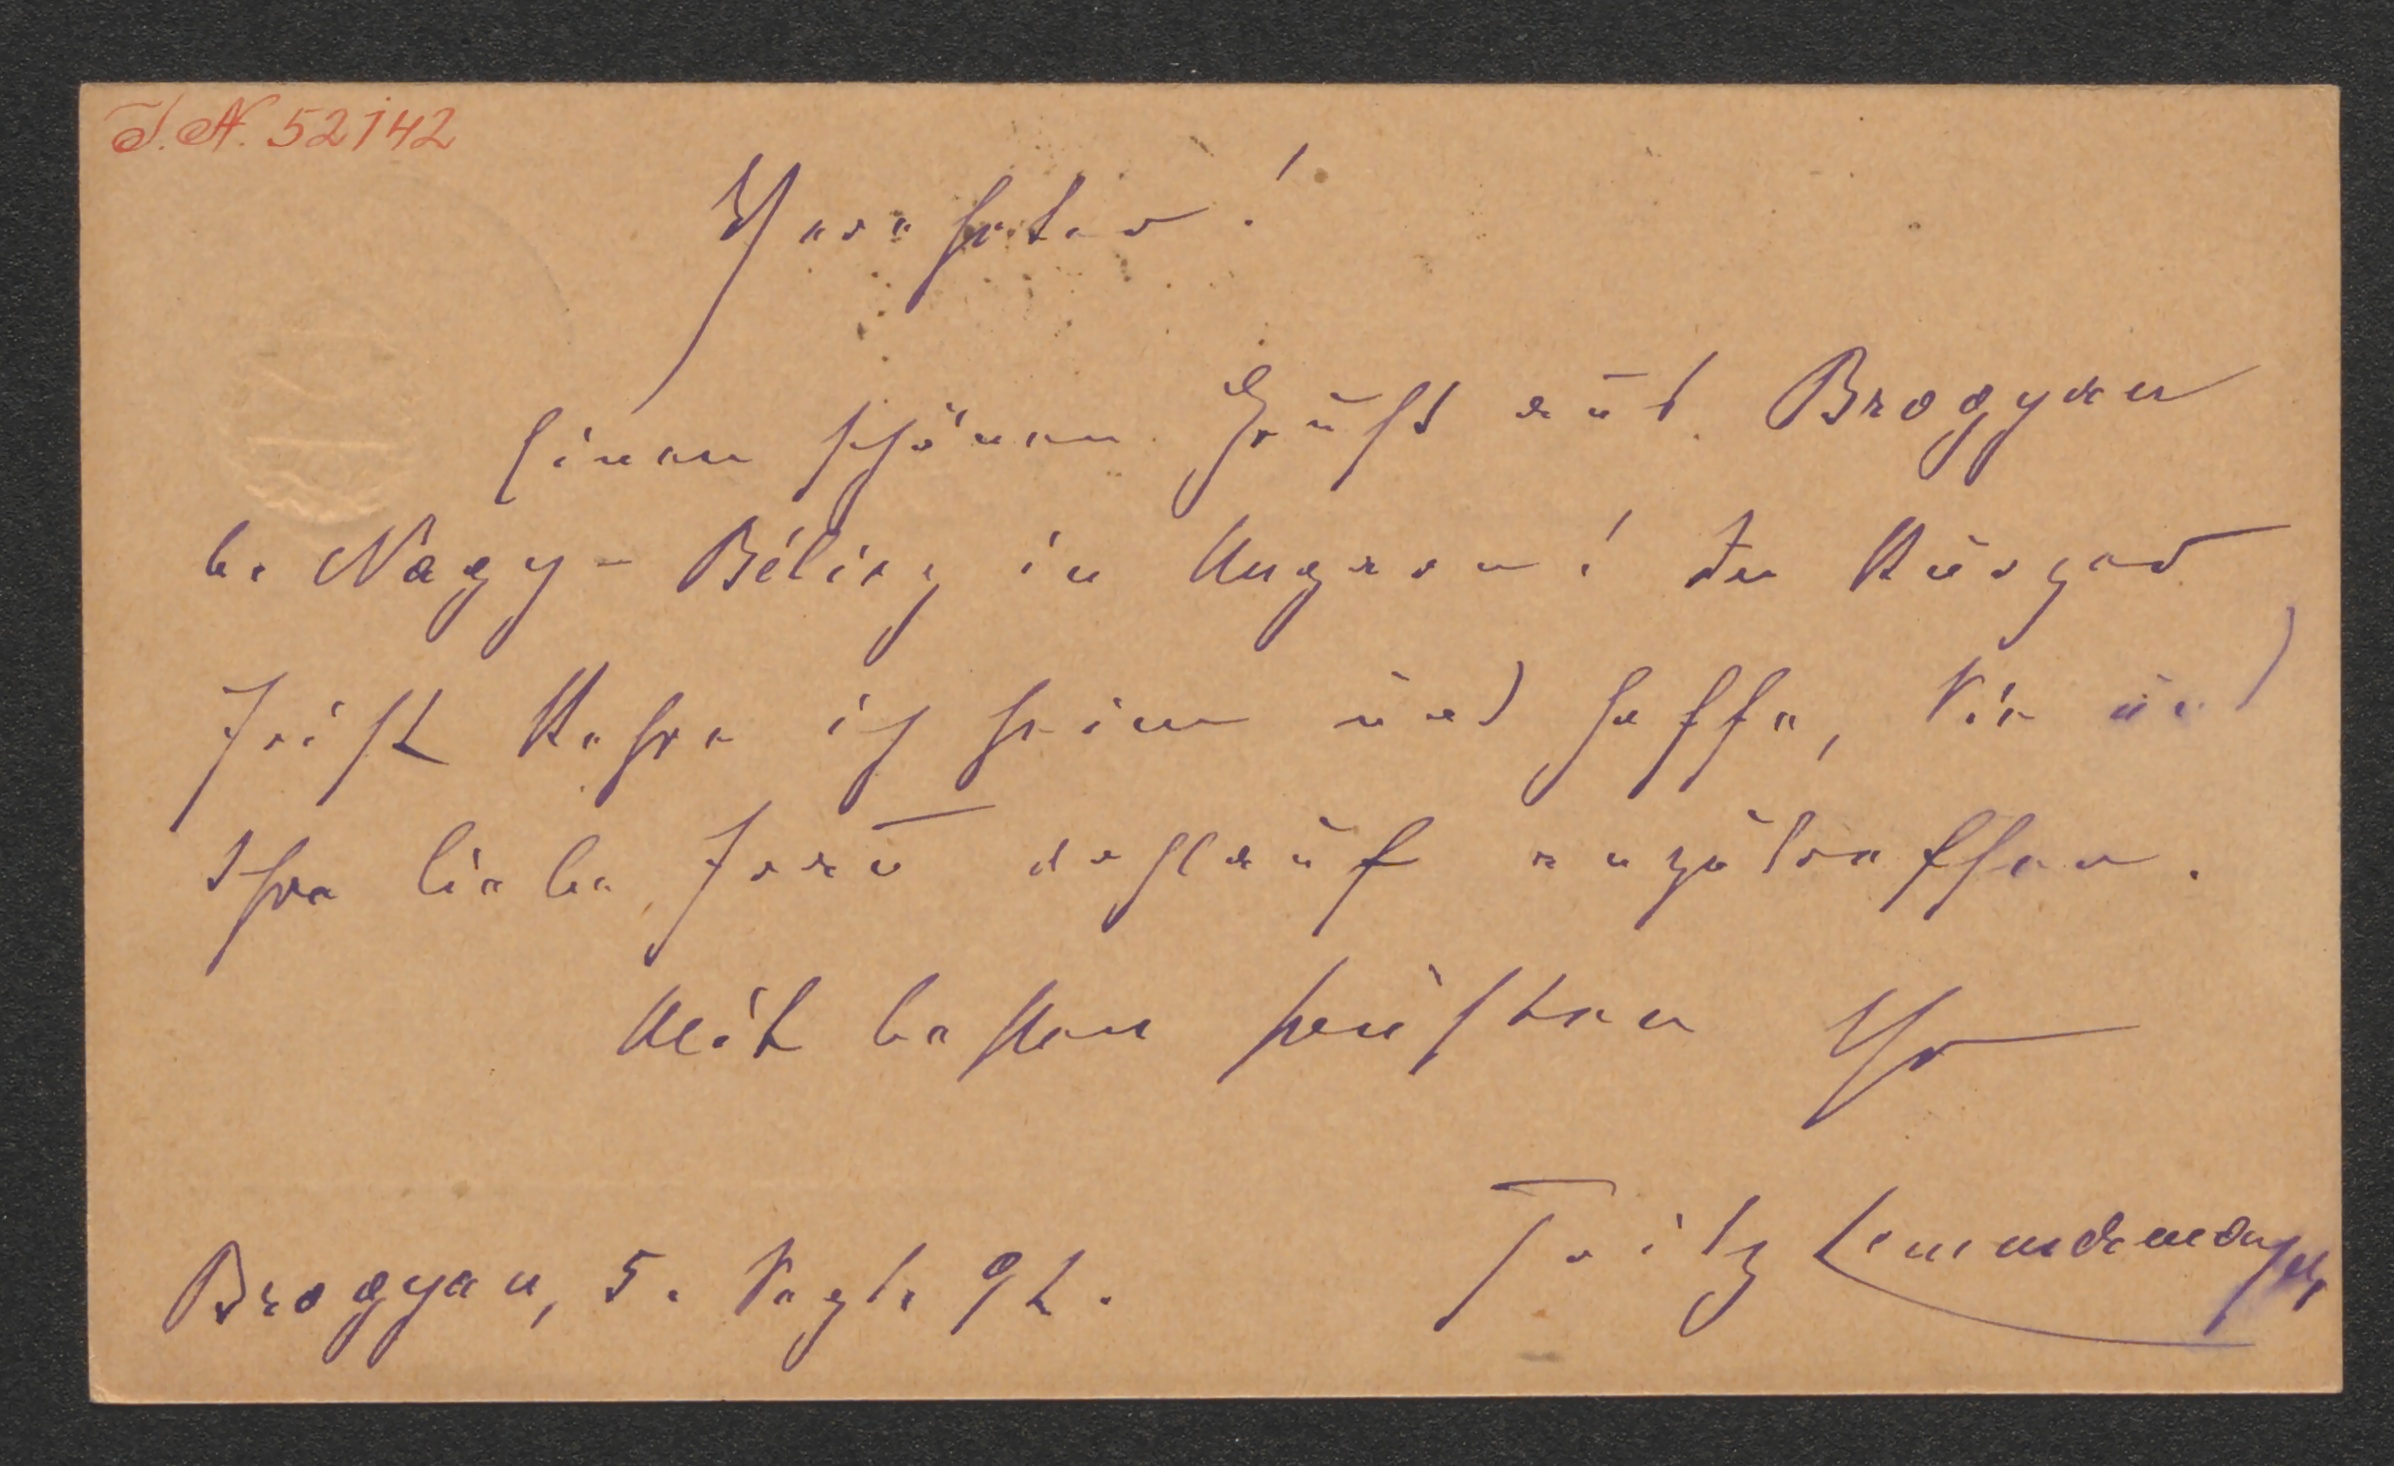 J. N. 52142
Verehrter!
Einen schönen Gruß aus Brogyan
be Nagy-Béliez in Ungarn! In kurzer
Frist kehre ich heim und hoffe, Sie und
Ihre liebe Frau wohlauf anzutreffen.
Mit besten Grüßen Ihr
Fritz Lemmermayer
Brogyan, 5. Sept. 92.